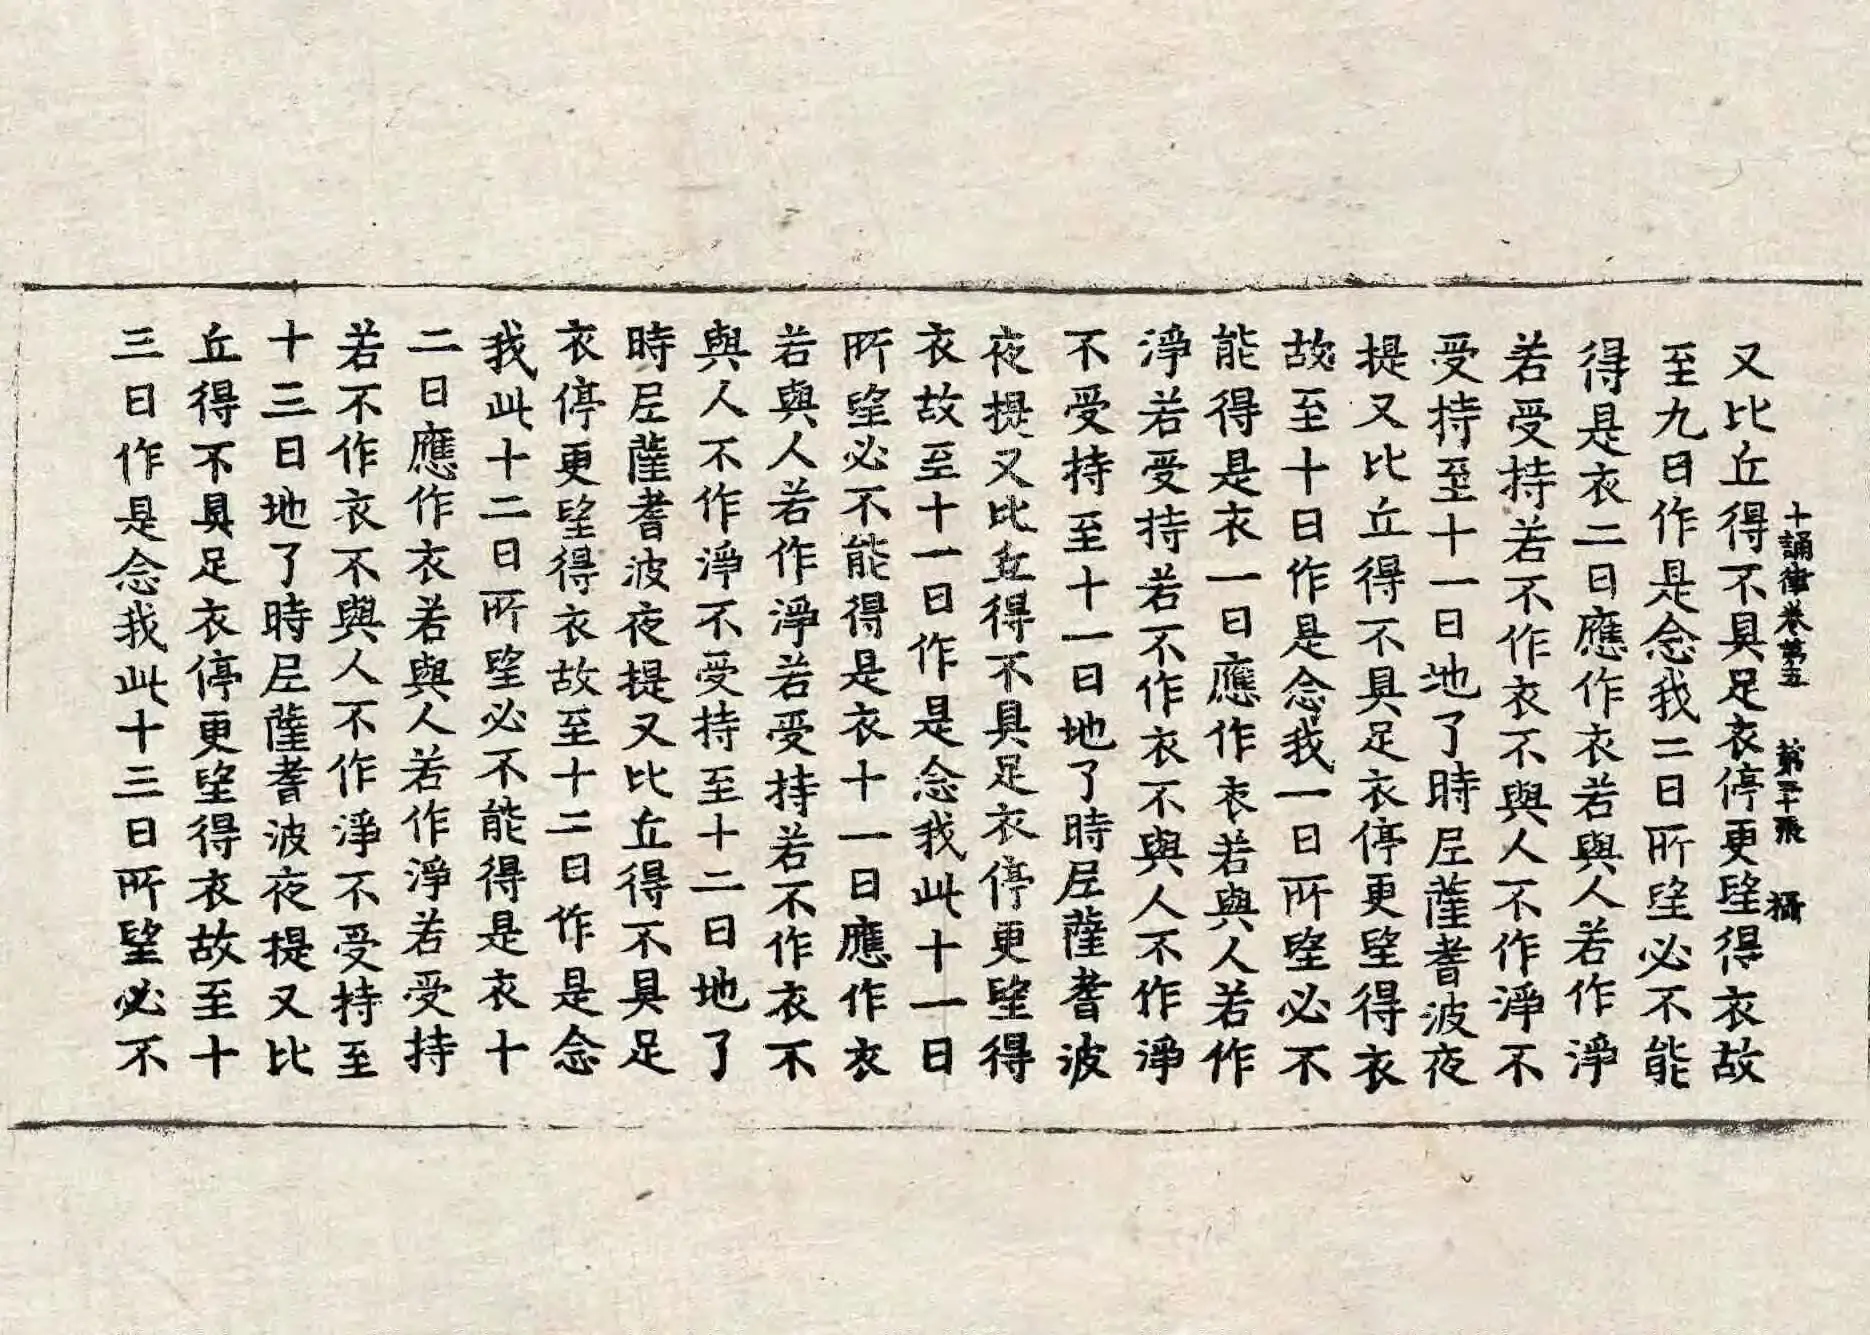 十誦律卷第五 第三十張 攝
又比丘得不具足衣停更望得衣故
至九日作是念我二日所望必不能
得是衣二日應作衣若與人若作淨
若受持若不作衣不與人不作淨不
受持至十一日地了時尼薩耆波夜
提又比丘得不具足衣停更望得衣
故至十日作是念我一日所望必不
能得是衣一日應作衣若與人若作
淨若受持若不作衣不與人不作淨
不受持至十一日地了時尼薩耆波
夜提又比丘得不具足衣停更望得
衣故至十一日作是念我此十一日
所望必不能得是衣十一日應作衣
若與人若作淨若受持若不作衣不
與人不作淨不受持至十二日地了
時尼薩耆波夜提又比丘得不具足
衣停更望得衣故至十二日作是念
我此十二日所望必不能得是衣十
二日應作衣若與人若作淨若受持
若不作衣不與人不作淨不受持至
十三日地了時尼薩耆波夜提又比
丘得不具足衣停更望得衣故至十
三日作是念我此十三日所望必不